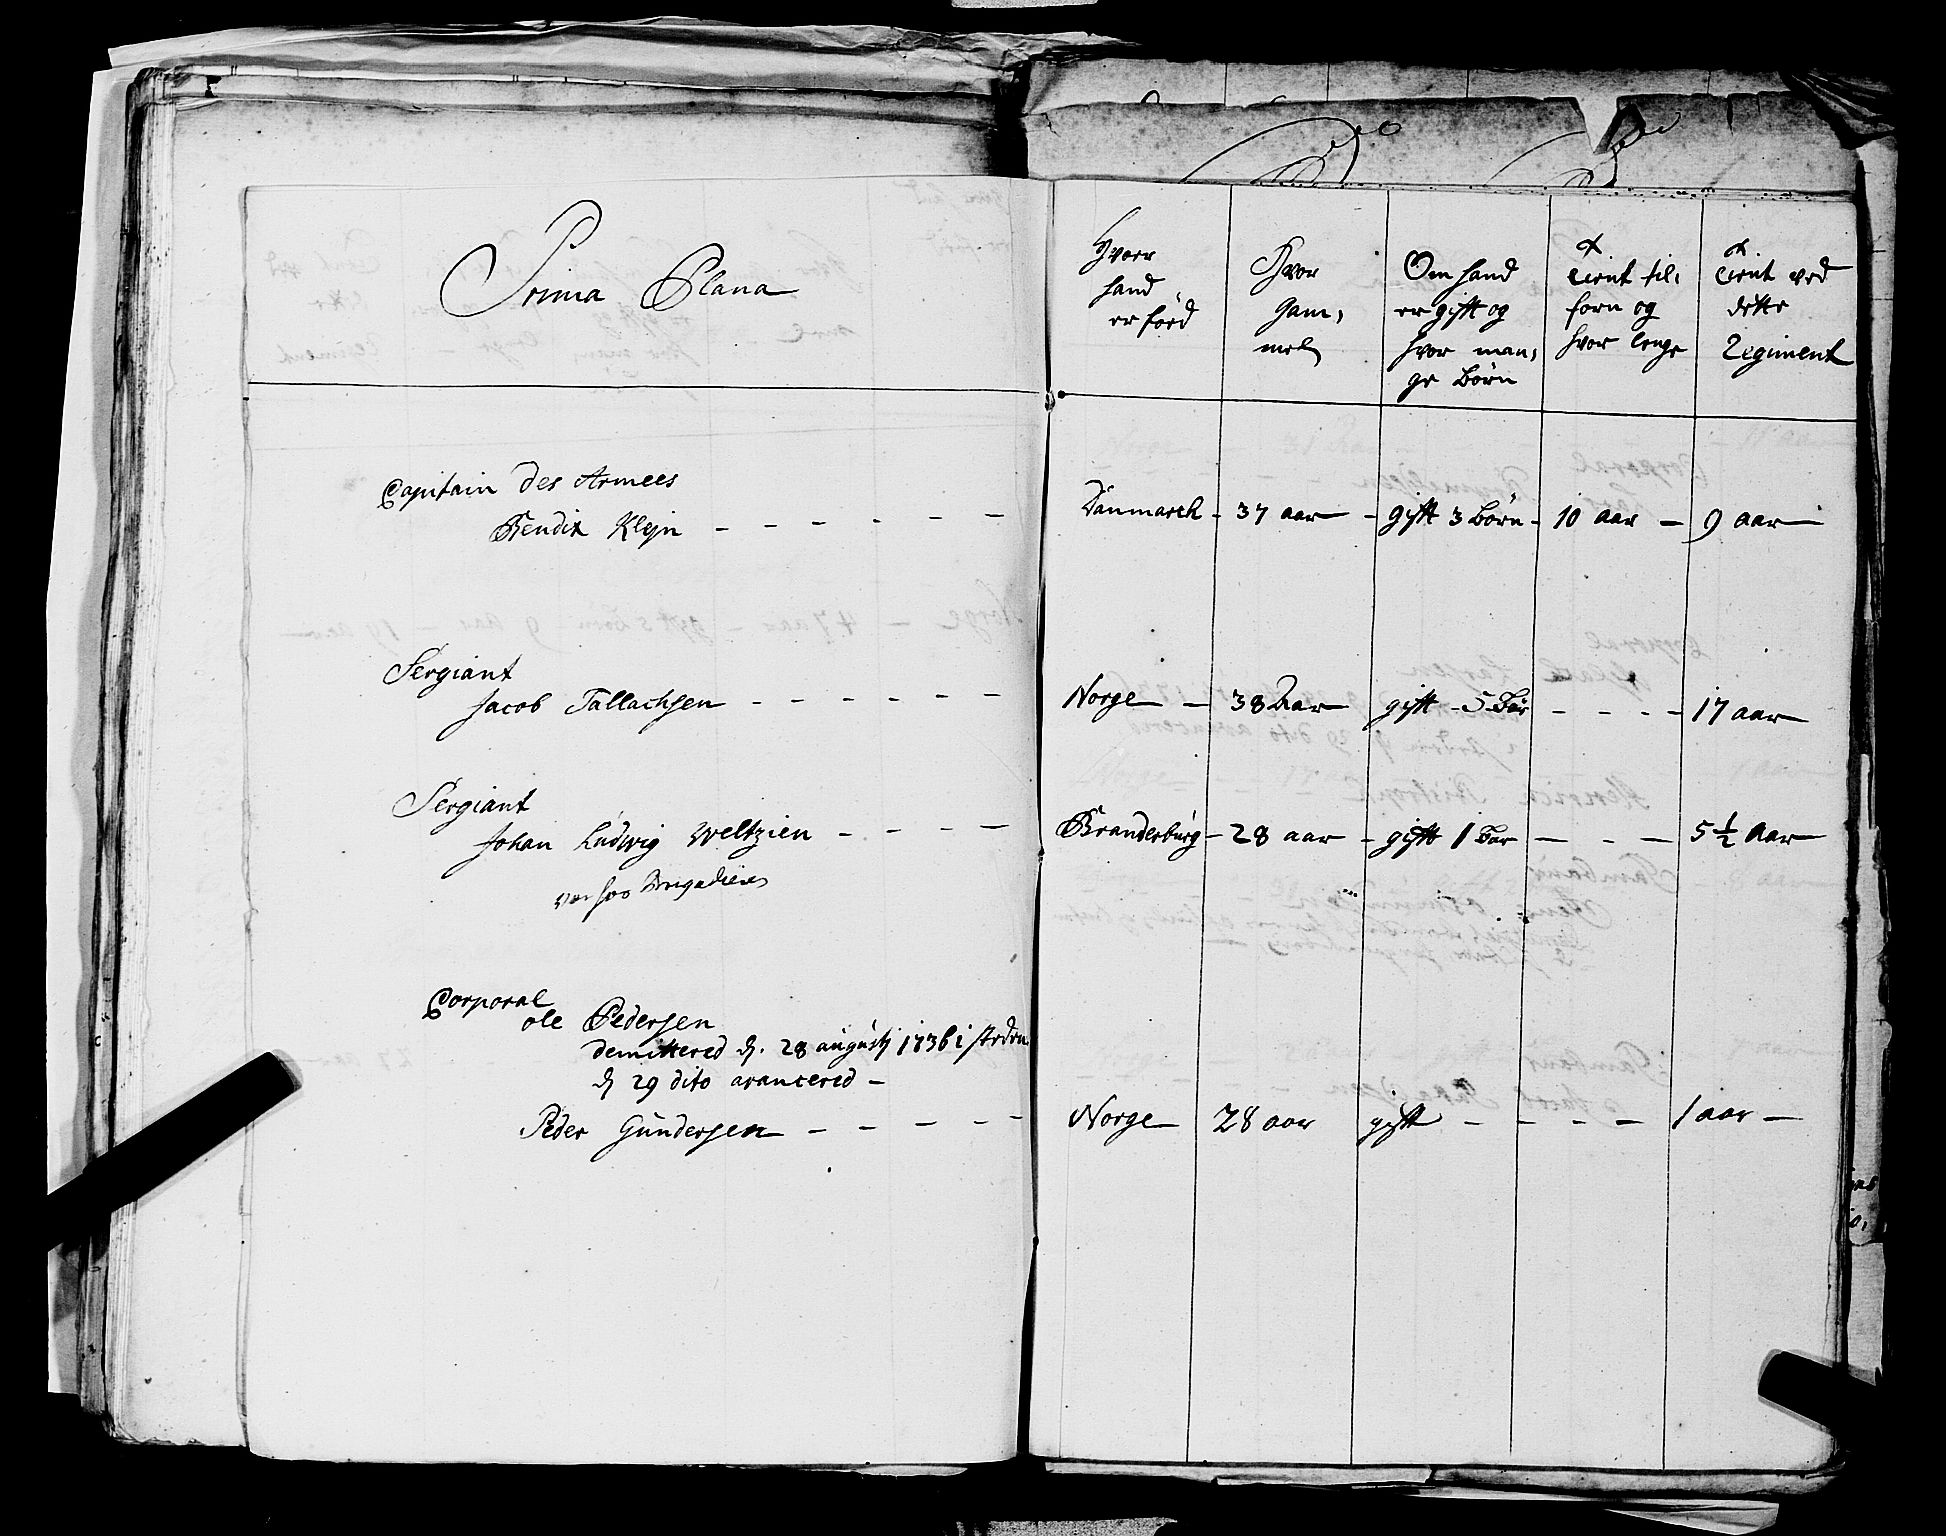 Prima Plana
Hvoer
hand
er föed
Hvor
Gam,
mel
Om hand
er gift og
hvor man,
ge Börn
tient til,
forn og
hvor lenge
tient ved
dette
Regiment
Capitain des Armees
Bendix Kleÿn - - - - - - Dänmarck - 37 aar - gift 3 Börn - 10 aar - 9 aar
Sergiant
Jacob Tallachsen - - - - - Norge - 38 Aar gift - 5 Bör - - - - 17 aar
Sergiant
Johan Ludwig Weltzien - - - - Brandenbürg - 28 aar - gift 1 Bar - - - 5 1/2 Aar
Corporal
ole Pedersen
demittered d. 28 augustj 1736 i steden
d 29 dito avancered -
Peder Gündersen - - - - - Norge 28 aar gift - - - - 1 aar -